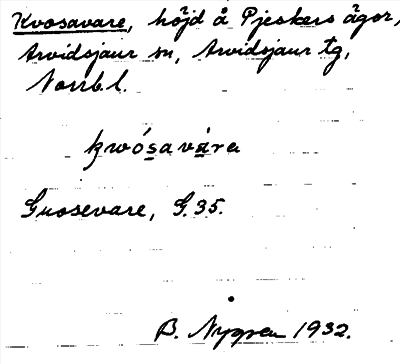 Kvosavare, höjd å Pjeskers ägor,
Arvidsjaur sn, Arvidsjaur tg,
Norrb. l.
kwósavára
Guosevare, G. 35.
B. Nygren 1932.